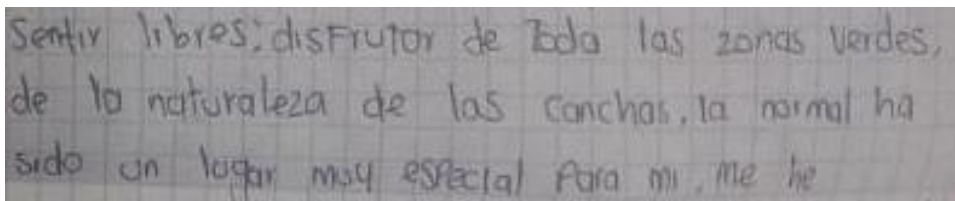 Sentir libres; disFrutar de Toda las zonas verdes,
de la naturaleza de las canchas, la normal ha
sido un lugar muy especial Para mi, me he